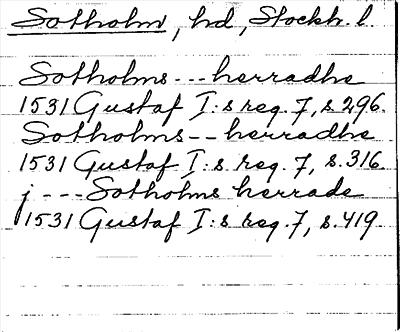 Sotholm, hd, Stockh. l.
Sotholms --- herradhe
1531 Gustaf I:s reg. 7, s. 296.
Sotholms -- herradhe
1531 Gustaf I:s reg. 7, s. 316.
j --- Sotholms herrade
1531 Gustaf I:s reg. 7, s. 419